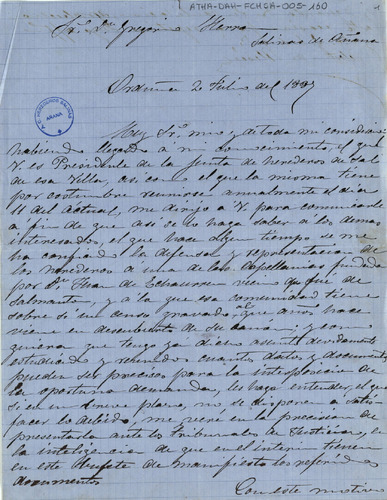 ATHA-DAH-FCHGA-005-160
Sr. Dn. Gregorio Herran
Salinas de Añana
Orduña 2 Julio del 1887
AÑANA
Muy Sr. mio y de toda mi consideracion
habiendo llegado á mi conocimiento, el que
V. es Presidente de la Junta de herederos de Sal
de esa Villa, asi con el que la misma tiene
por costumbre reunirse anualmente el dia
11 del actual, me dirijo á V. para comunicarle
á fin de que asi se lo haga saber á los demas
interesados, el que hace algun tiempo se me
ha confiado la defensa y representacion de
los herederos a una de las Capellanias fundadas
por Dn. Juan de Echaurren vecino que fue de
Salmanton, y á la que esa comunidad tiene
sobre si un censo gravado, que años hace
viene en descubierto de su canon; y como
quiera que tengo ya dicho asunto devidamente
estudiado y reunidos cuantos datos y documentos
pueden ser precisos para la interposicion de
la oportuna demanda, les hago entender, el que
si en un breve plazo, no se disponen a satis
facer lo devido, me veré en la precision de
presentarla ante los Tribunales de Justicia, en
la inteligencia de que en el interin tienen
en este Bufete de manifiesto los referidos
documentos
Con este motivo